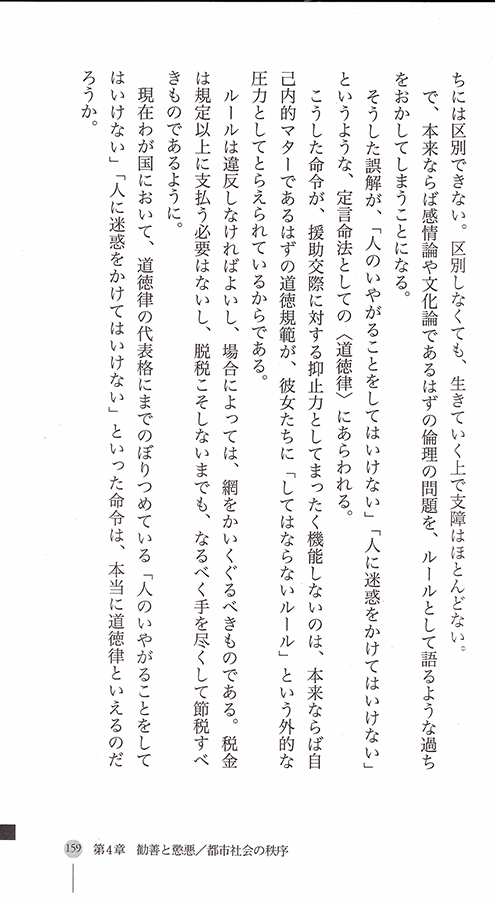 ちには区別できない。区別しなくても、生きていく上で支障はほとんどない。
で、本来ならば感情論や文化論であるはずの倫理の問題を、ルールとして語るような過ち
をおかしてしまうことになる。
そうした誤解が、「人のいやがることをしてはいけない」「人に迷惑をかけてはいけない」
というような、定言命法としての〈道徳律〉にあらわれる。
こうした命令が、援助交際に対する抑止力としてまったく機能しないのは、本来ならば自
己内的マターであるはずの道徳規範が、彼女たちに「してはならないルール」という外的な
圧力としてとらえられているからである。
ルールは違反しなければよいし、場合によっては、網をかいくぐるべきものである。税金
は規定以上に支払う必要はないし、脱税こそしないまでも、なるべく手を尽くして節税すべ
きものであるように。
現在わが国において、道徳律の代表格にまでのぼりつめている「人のいやがることをして
はいけない」「人に迷惑をかけてはいけない」といった命令は、本当に道徳律といえるのだ
ろうか。
159 第4章 勧善と懲悪／都市社会の秩序